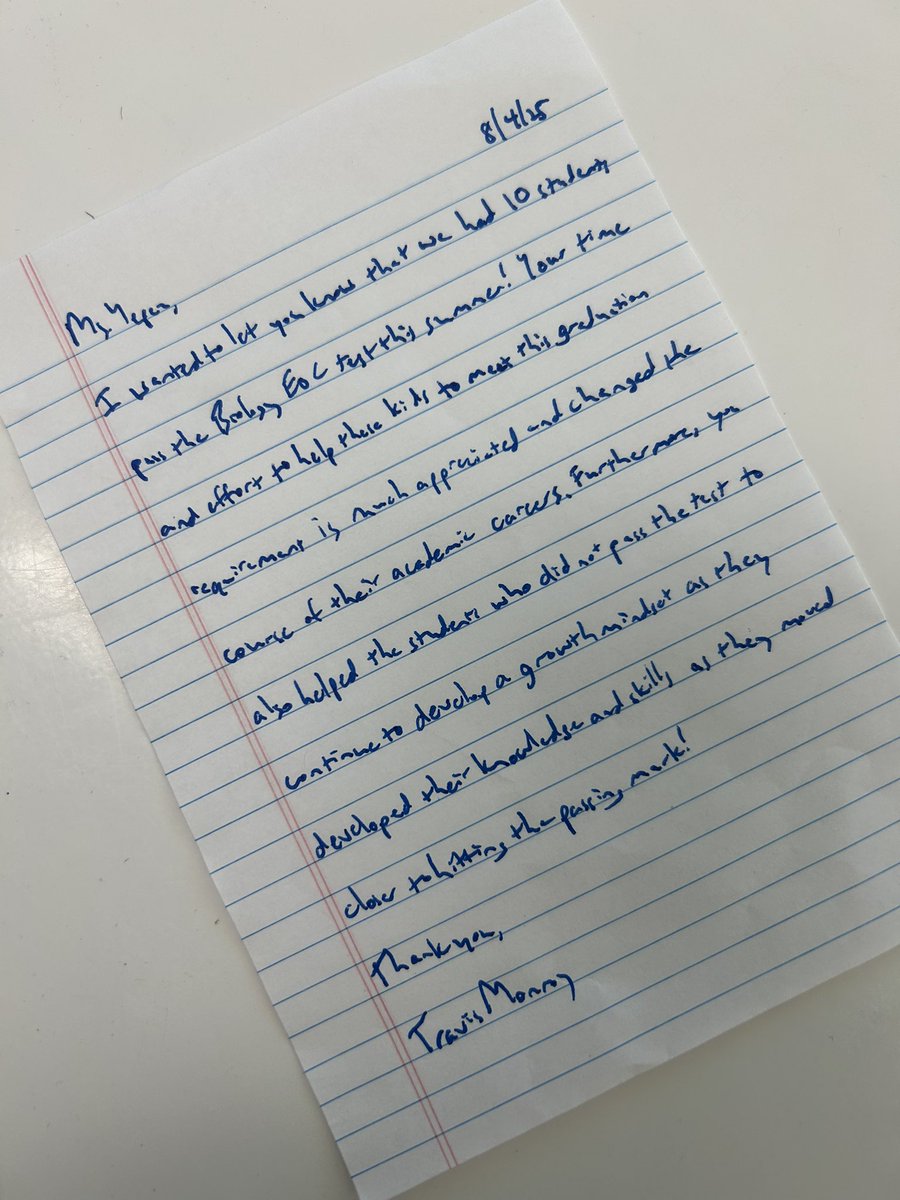 8/4/25
Ms. Yepez,
I wanted to let you know that we had 10 students
pass the Biology EOC test this summer! Your time
and effort to help these kids to meet this graduation
requirement is much appreciated and changed the
course of their academic careers. Furthermore, you
also helped the students who did not pass the test to
continue to develop a growth mindset as they
developed their knowledge and skills as they moved
closer to hitting the passing mark!
Thank you,
Travis Monroy